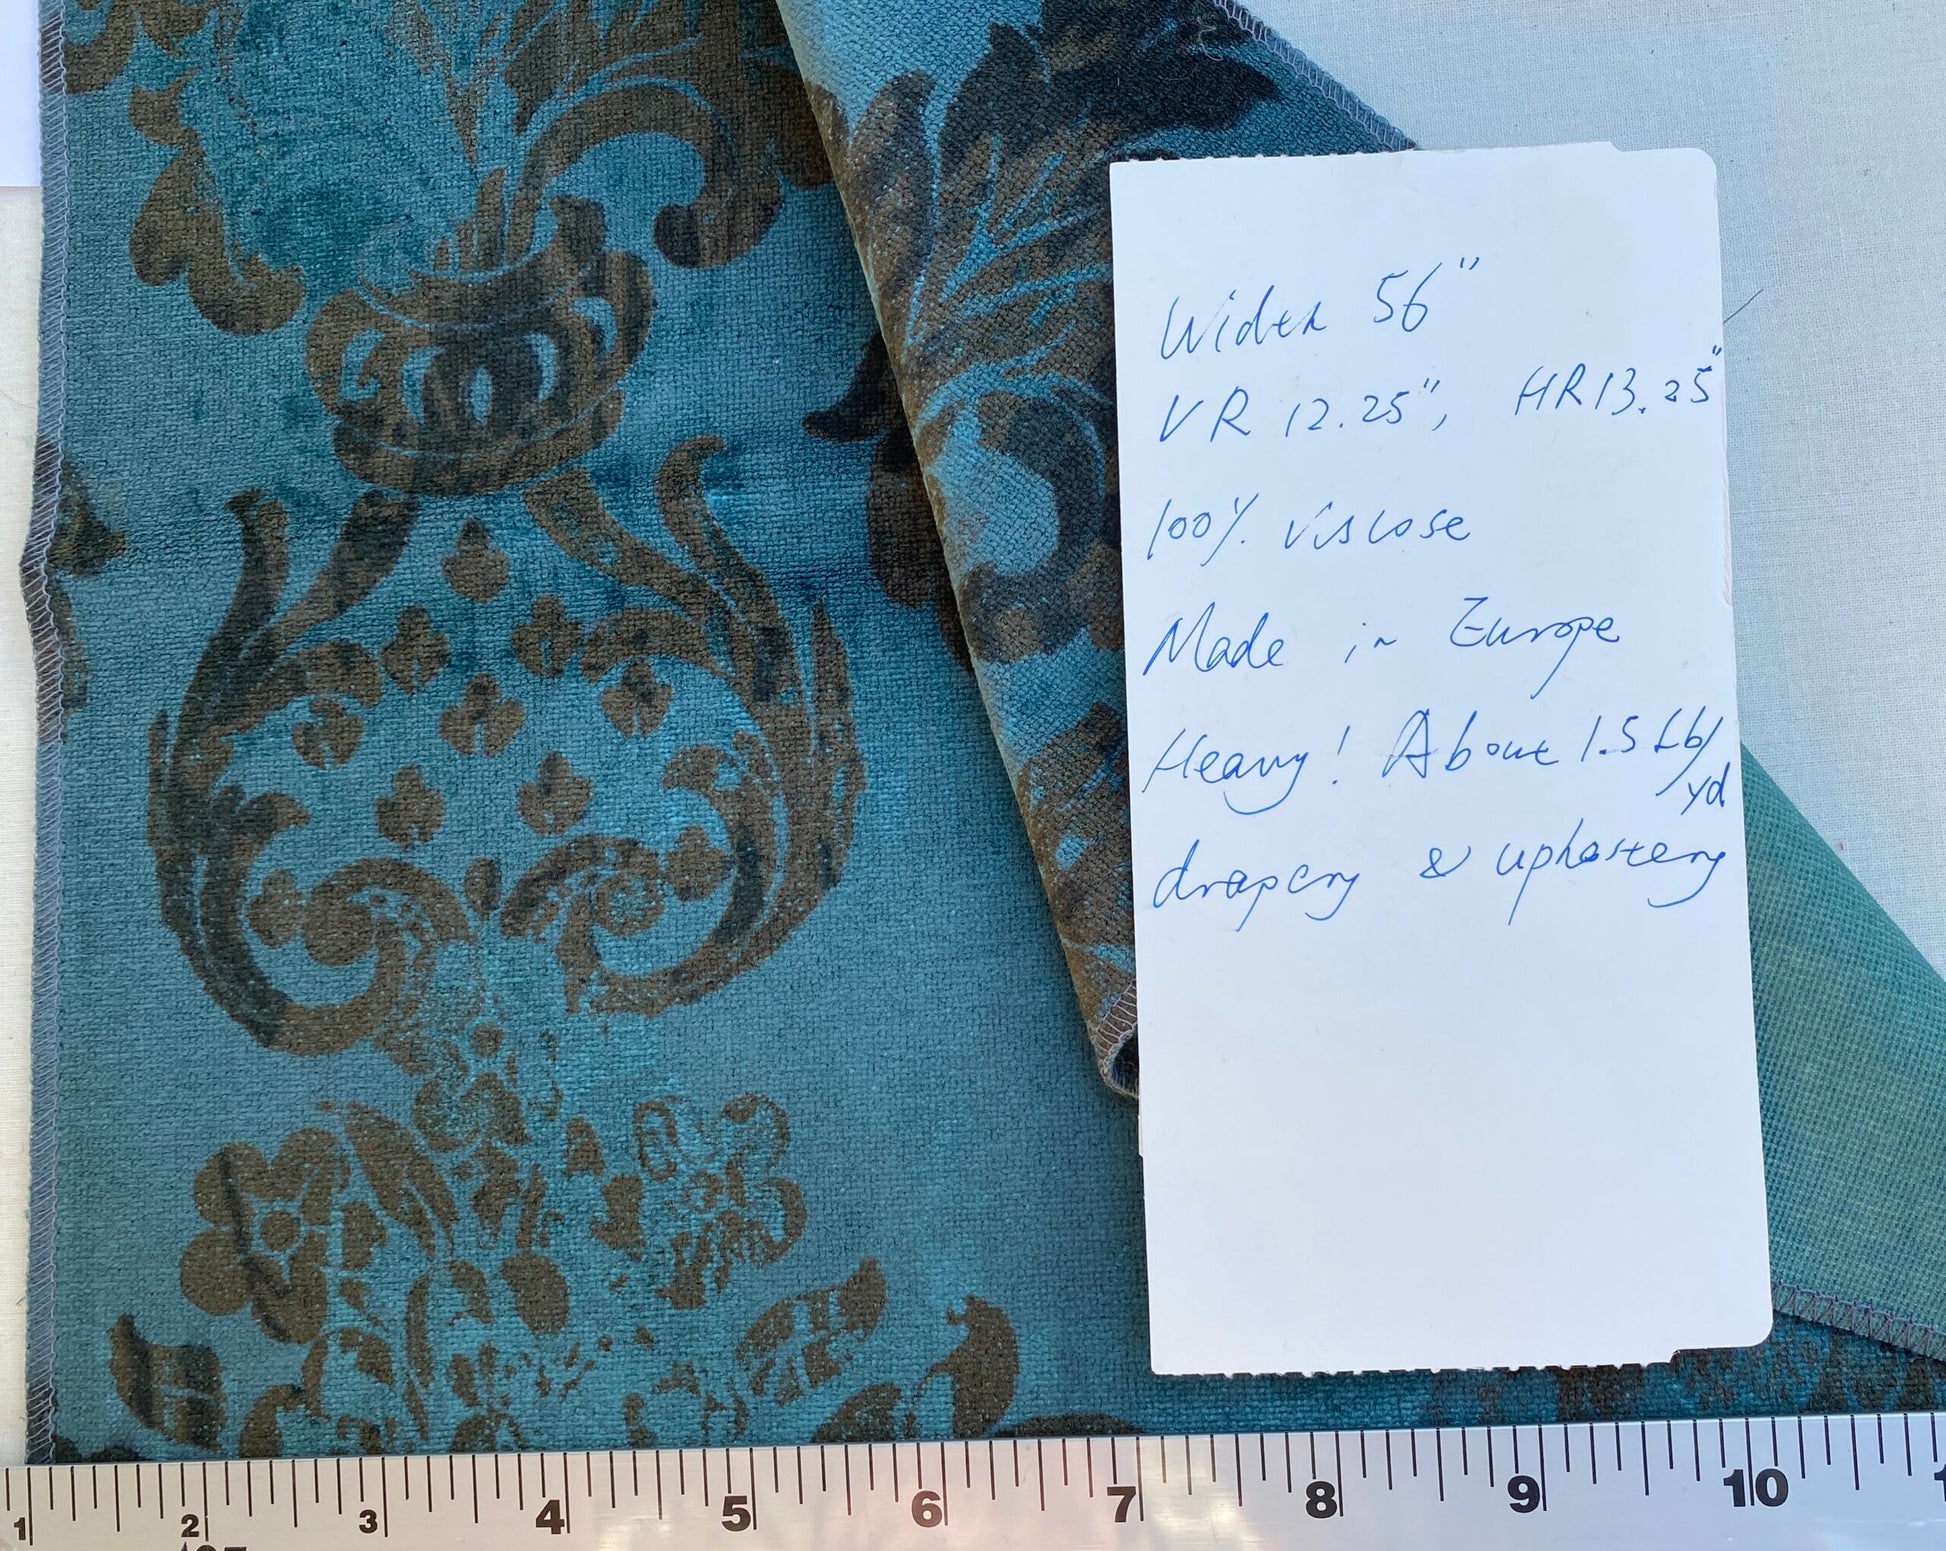 Width 56"
VR 12.25", HR 13.25"
100% viscose
Made in Europe
Heavy! About 1.5 Lb/
yd
drapery & upholstery
1 2 3 4 5 6 7 8 9 10